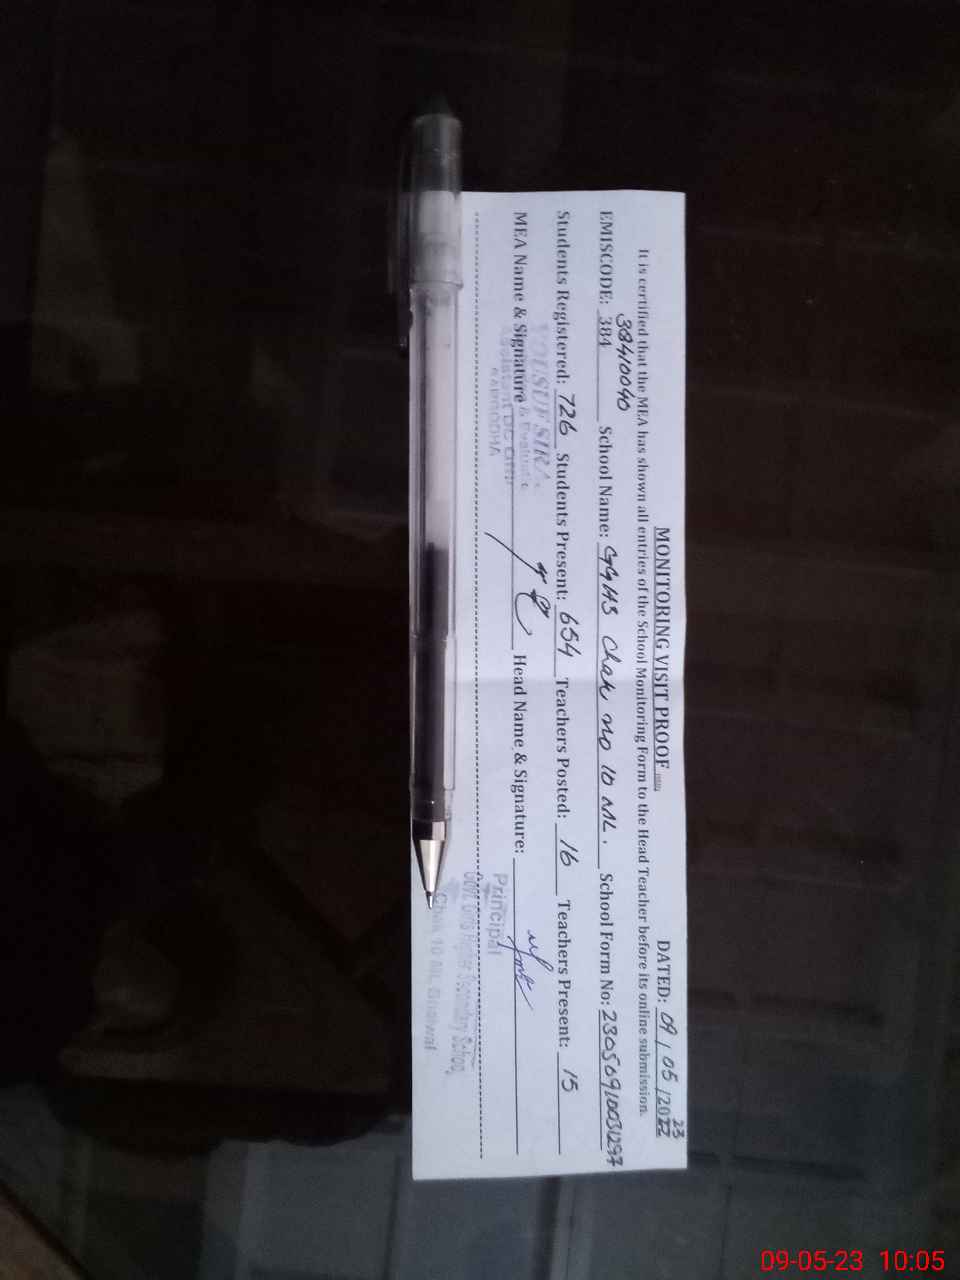 MONITORING VISIT PROOF
DATED: 09/05/2022 23
It is certified that the MEA has shown all entries of the School Monitoring Form to the Head Teacher before its online submission.
38410040
EMISCODE: 384 School Name: GGHS Chak no 10 ML. School Form No:
Students Registered: 726 Students Present: 654 Teachers Posted: 16 Teachers Present: 15
MEA Name & Signature Head Name & Signature:
YOUSUF
Principal
Govt. Girls Higher Secondary School
Chak 10 ML Bhalwal
09-05-23 10:05